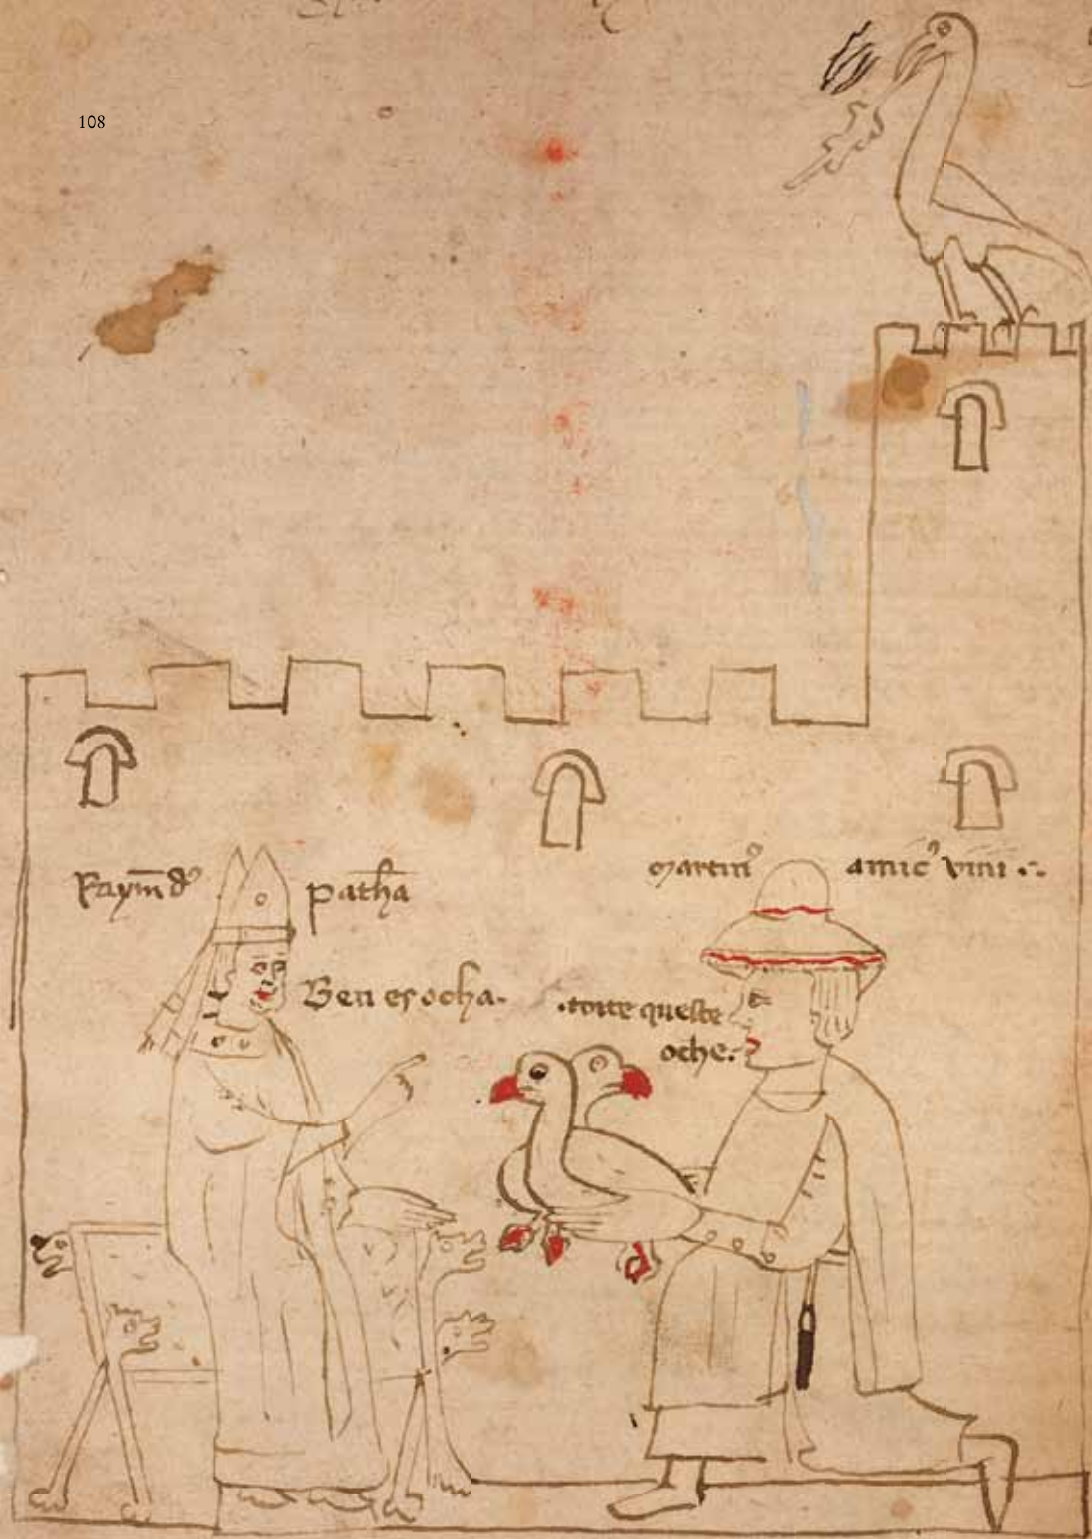 108
Raym̄dꝰ
pat̄ha
martinꝰ
amicꝰ vini
Ben es ocha.
.toite queste
oche.